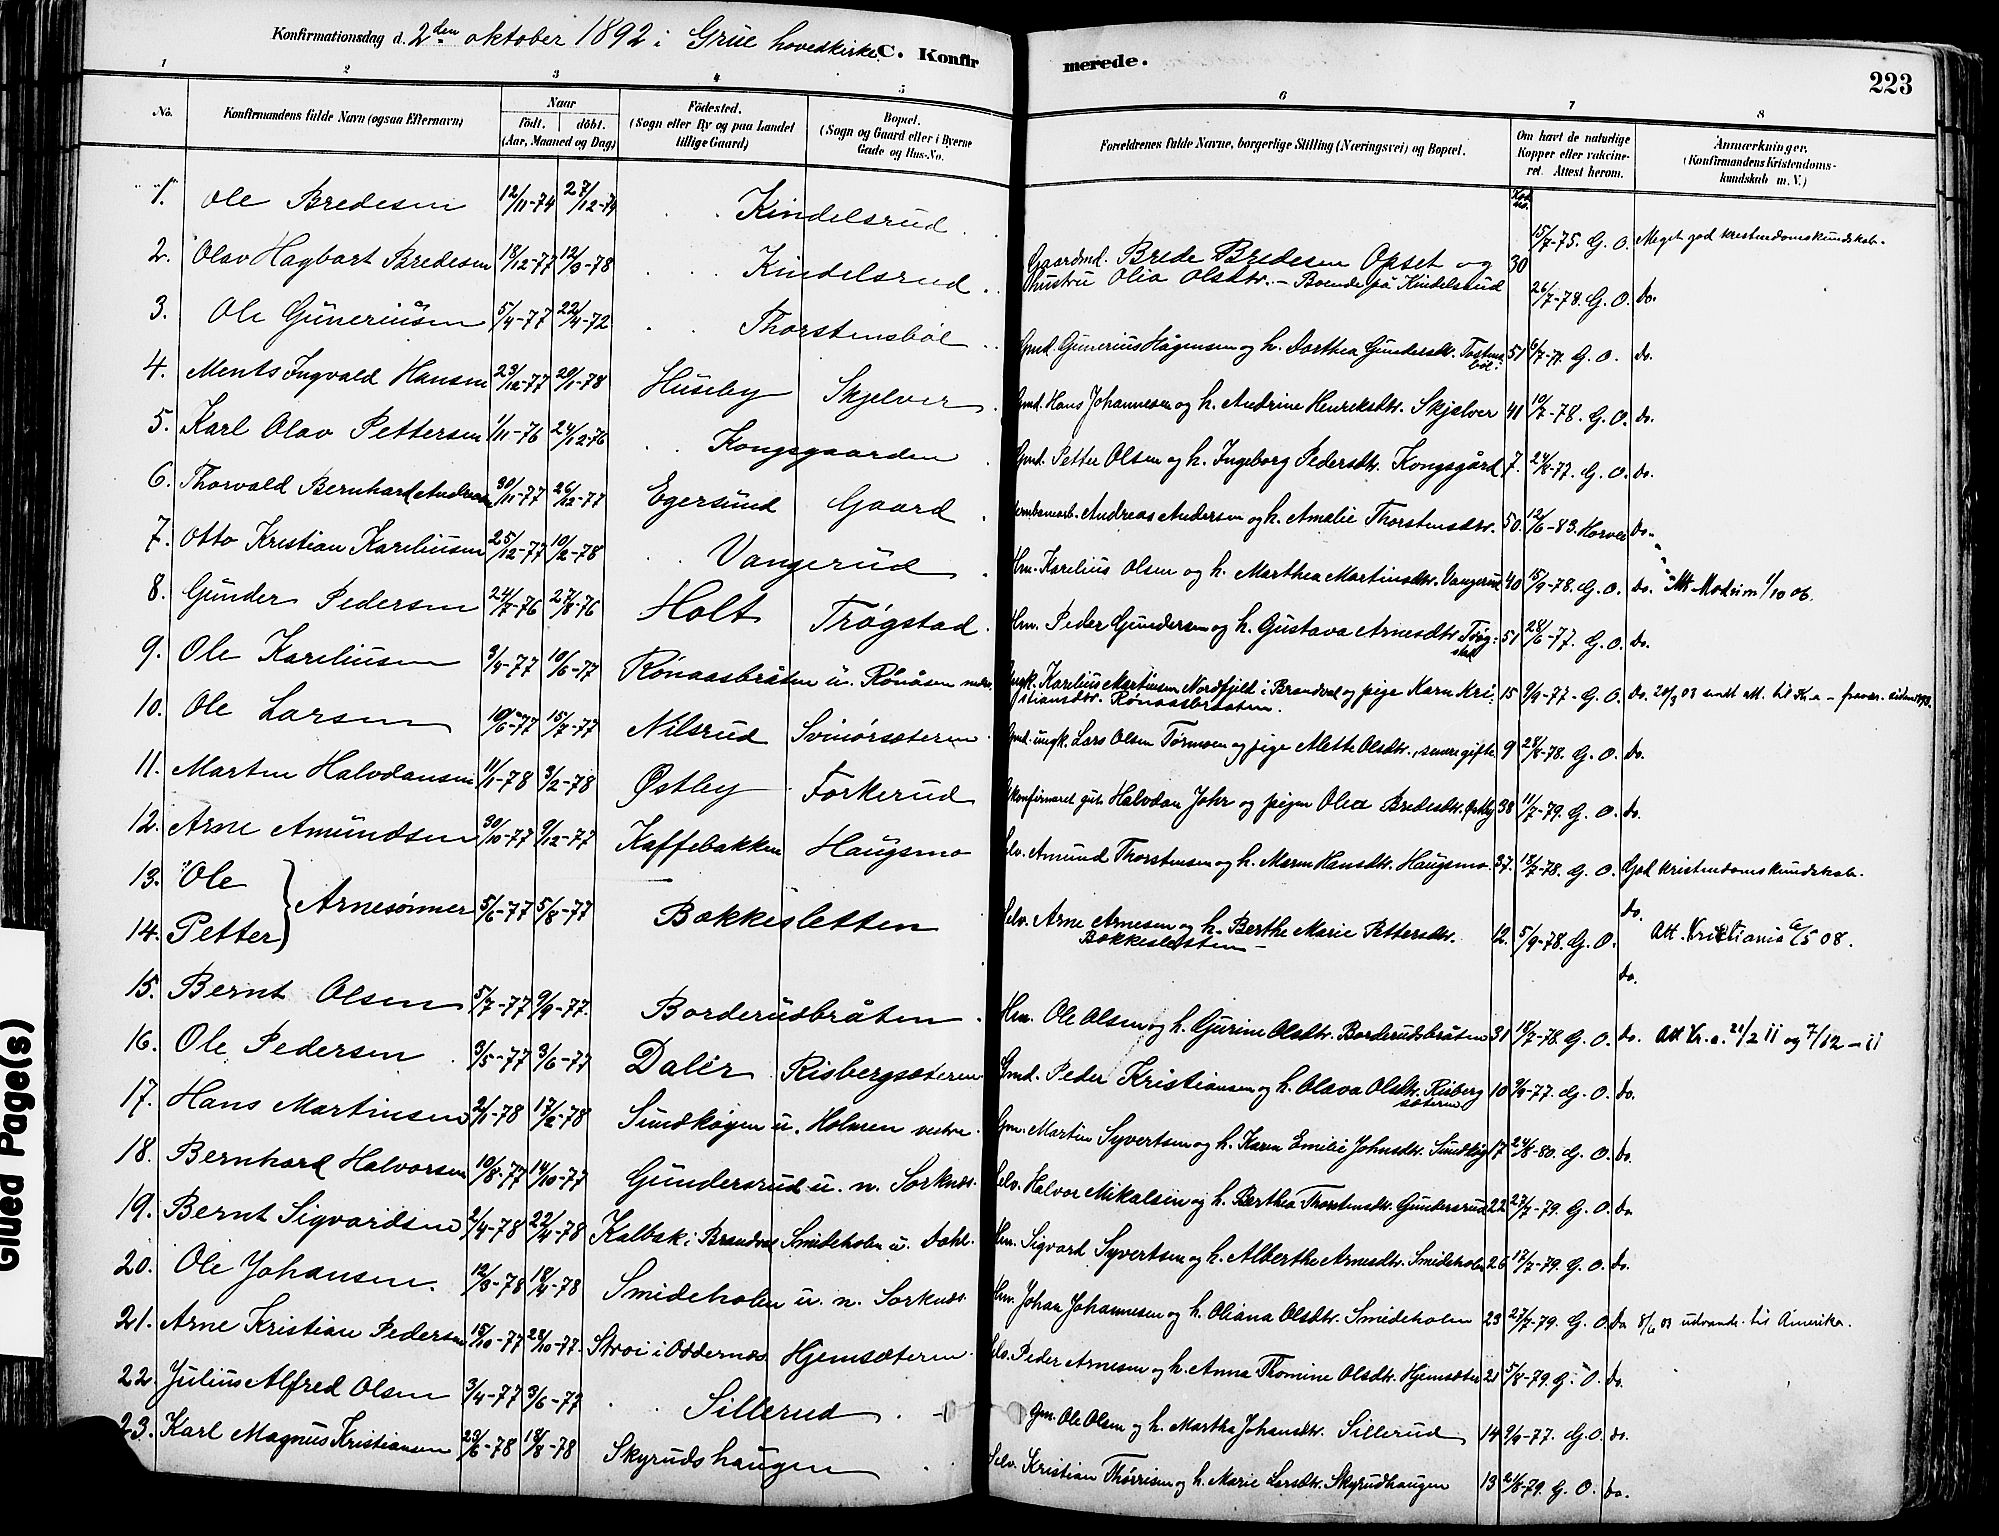 Konfirmationsdag d. 2den oktober 1892 i Grue hovedkirke. C. Konfirmerede. 223
1 2 3 4 5 6 7 8
No. Konfirmandens fulde Navn (ogsaa Efternavn) Naar født. døbt. (Aar, Maaned og Dag) Fødested. (Sogn eller By og paa Landet tillige Gaard) Bopæl. (Sogn og Gaard eller i Byerne Gade og Hus-No. Forældrenes fulde Navne, borgerlige Stilling (Næringsvei) og Bopæl. Om havt de naturlige Kopper eller vakcineret. Attest herom. Anmærkninger. (Konfirmandens Kristendomskundskab m. V.)
1. Ole Bredesen 12/11-74 27/12-74 Kindelsrud 15/7-75. G. O. Meget god kristendomskundskab.
2. Olav Hagbart Bredesen 18/12-77 12/3-78 Kindelsrud Gaardmd. Brede Bredesen Opset og hustru Olia Olsdtr. - Boende på Kindelsrud 30 26/7-78. G. O. do.
3. Ole Guneriusen 5/4-77 22/4-72 Thorstensbøl Gmd. Gunerius Hågensen og h. Dorthea Gundersdtr. Tostensbøl. 51 6/7-71. G. O. do.
4. Ments Ingvald Hansen 23/12-77 20/1-78 Huseby Skjelver Gmd. Hans Johannesen og h. Andrine Henriksdtr. Skjelver 41 10/7-78. G. O. do.
5. Karl Olav Pettersen 1/11-76 24/12-76 Kongsgaarden Gmd. Petter Olsen og h. Ingeborg Pedersdtr. Kongsgård 7. 24/8-77. G. O. do.
6. Thorvald Bernhard Andreasen 30/11-77 26/12-77 Egersund Gaard Jernbanearb. Andreas Andersen og h. Amalie Thorstensdtr. 50 12/6-83. do.
7. Otto Kristian Kareliusen 25/12-77 10/2-78 Vangerud Hm. Karelius Olsen og h. Marthea Martinsdtr. Vangerud 40 15/9-78. G. O. do. Att. Modum 1/10 06.
8. Gunder Pedersen 24/7-76 27/8-76 Holt Trøgstad Hm. Peder Gundersen og h. Gustava Arnesdtr. Trøgstad 51 28/6-77. G. O. do.
9. Ole Kareliusen 3/4-77 10/6-77 Rönaasbråten u. Rönåsen nedre Ungk. Karelius Martinsen Nordfjeld i Brandval og pige Karn Kristiansdtr. Rønaasbraaten. 15 9/9-77. G. O. do. 20/3 03 att. til Kr.a -
10. Ole Larsen 10/6-77 15/7-77 Nilsrud Svinørsæteren Gmd. ungk. Lars Olsen Tørmoen og pige Mette Olsdtr., senere gifte 9 24/8-78. G. O. do.
11. Martin Halvdansen 11/1-78 3/2-78 Østby Forkerud Ukonfirmeret gut Halvdan Johr og pigen Olea Bredesdtr. Østby 38 11/7-79. G. O. do.
12. Arne Amundsen 30/10-77 9/12-77 Kaffebakken Haugsmo Selv. Amund Thorstensen og h. Maren Hansdtr. Haugsmo. 37. 18/7-78. G. O. God kristendomskundskab.
13. Ole } Arnesønner 5/6-77 5/8-77 Bækkesletten Selv. Arne Arnesen og h. Berthe Marie Pettersdtr. Bækkesletten - 12. 5/9-78. G. O. do. Att. Kristiania 6/5 08.
14. Petter } do.
15. Bernt Olsen 5/7-77 9/9-77. Borderudbråten Hm. Ole Olsen og h. Gurine Olsdtr. Borderudsbråten 31 18/7-78. G. O. do. Att Kr.a. 21/2 11 og 7/12-11
16. Ole Pedersen 3/5-77 3/6-77 Dalér Risbergsæteren Gmd. Peder Kristiansen og h. Olava Olsdtr. Risbergsæteren 10 9/9-77. G. O. do.
17. Hans Martinsen 2/1-78 17/2-78 Sundkøgen u. Holmen vestre Gm. Martin Syvertsen og h. Karen Emilie Johnsdtr. Sundkøg 17 24/8-80. G. O. do.
18. Bernhard Halvorsen 10/8-77 14/10-77 Gundersrud u. n. Sorknæs. Selv. Halvor Mikalsen og h. Berthea Thorstensdtr. Gundersrud 22 27/7-79. G. O. do.
19. Bernt Sigvardsen 2/4-78 22/4-78 Kalbak i Brandval Smideholen u. Dahl. Hm. Sigvard Syvertsen og h. Alberthe Arnesdtr. Smideholen 26 17/7-79. G. O. do.
20. Ole Johansen. 12/3-78 18/4-78 Smideholen u. n. Sorknæs. Hm. Johan Johannesen og h. Oliana Olsdtr. Smideholen 23 27/7-79. G. O. do 8/6 03 udvandr. til Amerika.
21. Arne Kristian Pedersen 15/10-77 28/10-77. Stroi i Oddernæs Hjemsæteren Selv. Peder Arnesen og h. Anna Thomine Olsdtr. Hjemsæter 21 5/8-79. G. O. do.
22. Julius Alfred Olsen 3/4-77 3/6-77 Sillerud Gm. Ole Olsen og h. Martha Johansdtr. Sillerud 14 9/9-77. G. O. do.
23. Karl Magnus Kristiansen 23/6-78 18/8-78 Skyrudshaugen Selv. Kristian Thørrisen og h. Marie Larsdtr. Skyrudhaugen 13 2/8-79. G. O. do.
Glued Page(s)